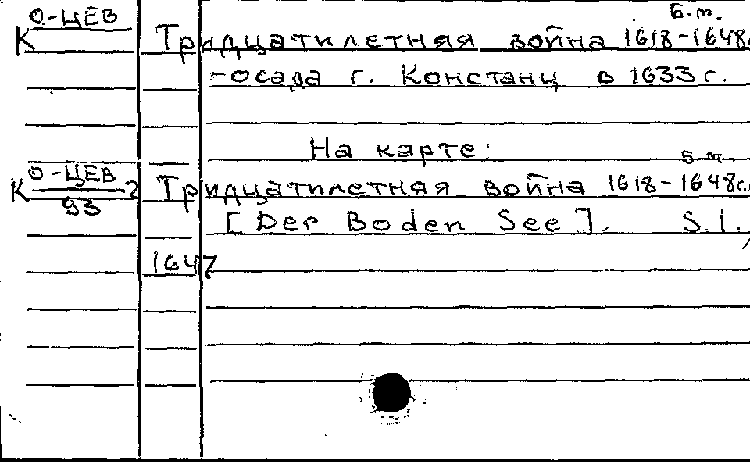 О-ЦЕВ
Б.м.
К Тридцатилетняя война 1618-1648г
-осада г. Констанц в 1633 г.
На карте:
О-ЦЕВ
Б.м.
К 93 2 Тридцатилетняя война 1618-1648г.
[Der Boden See]. S.l.,
1647